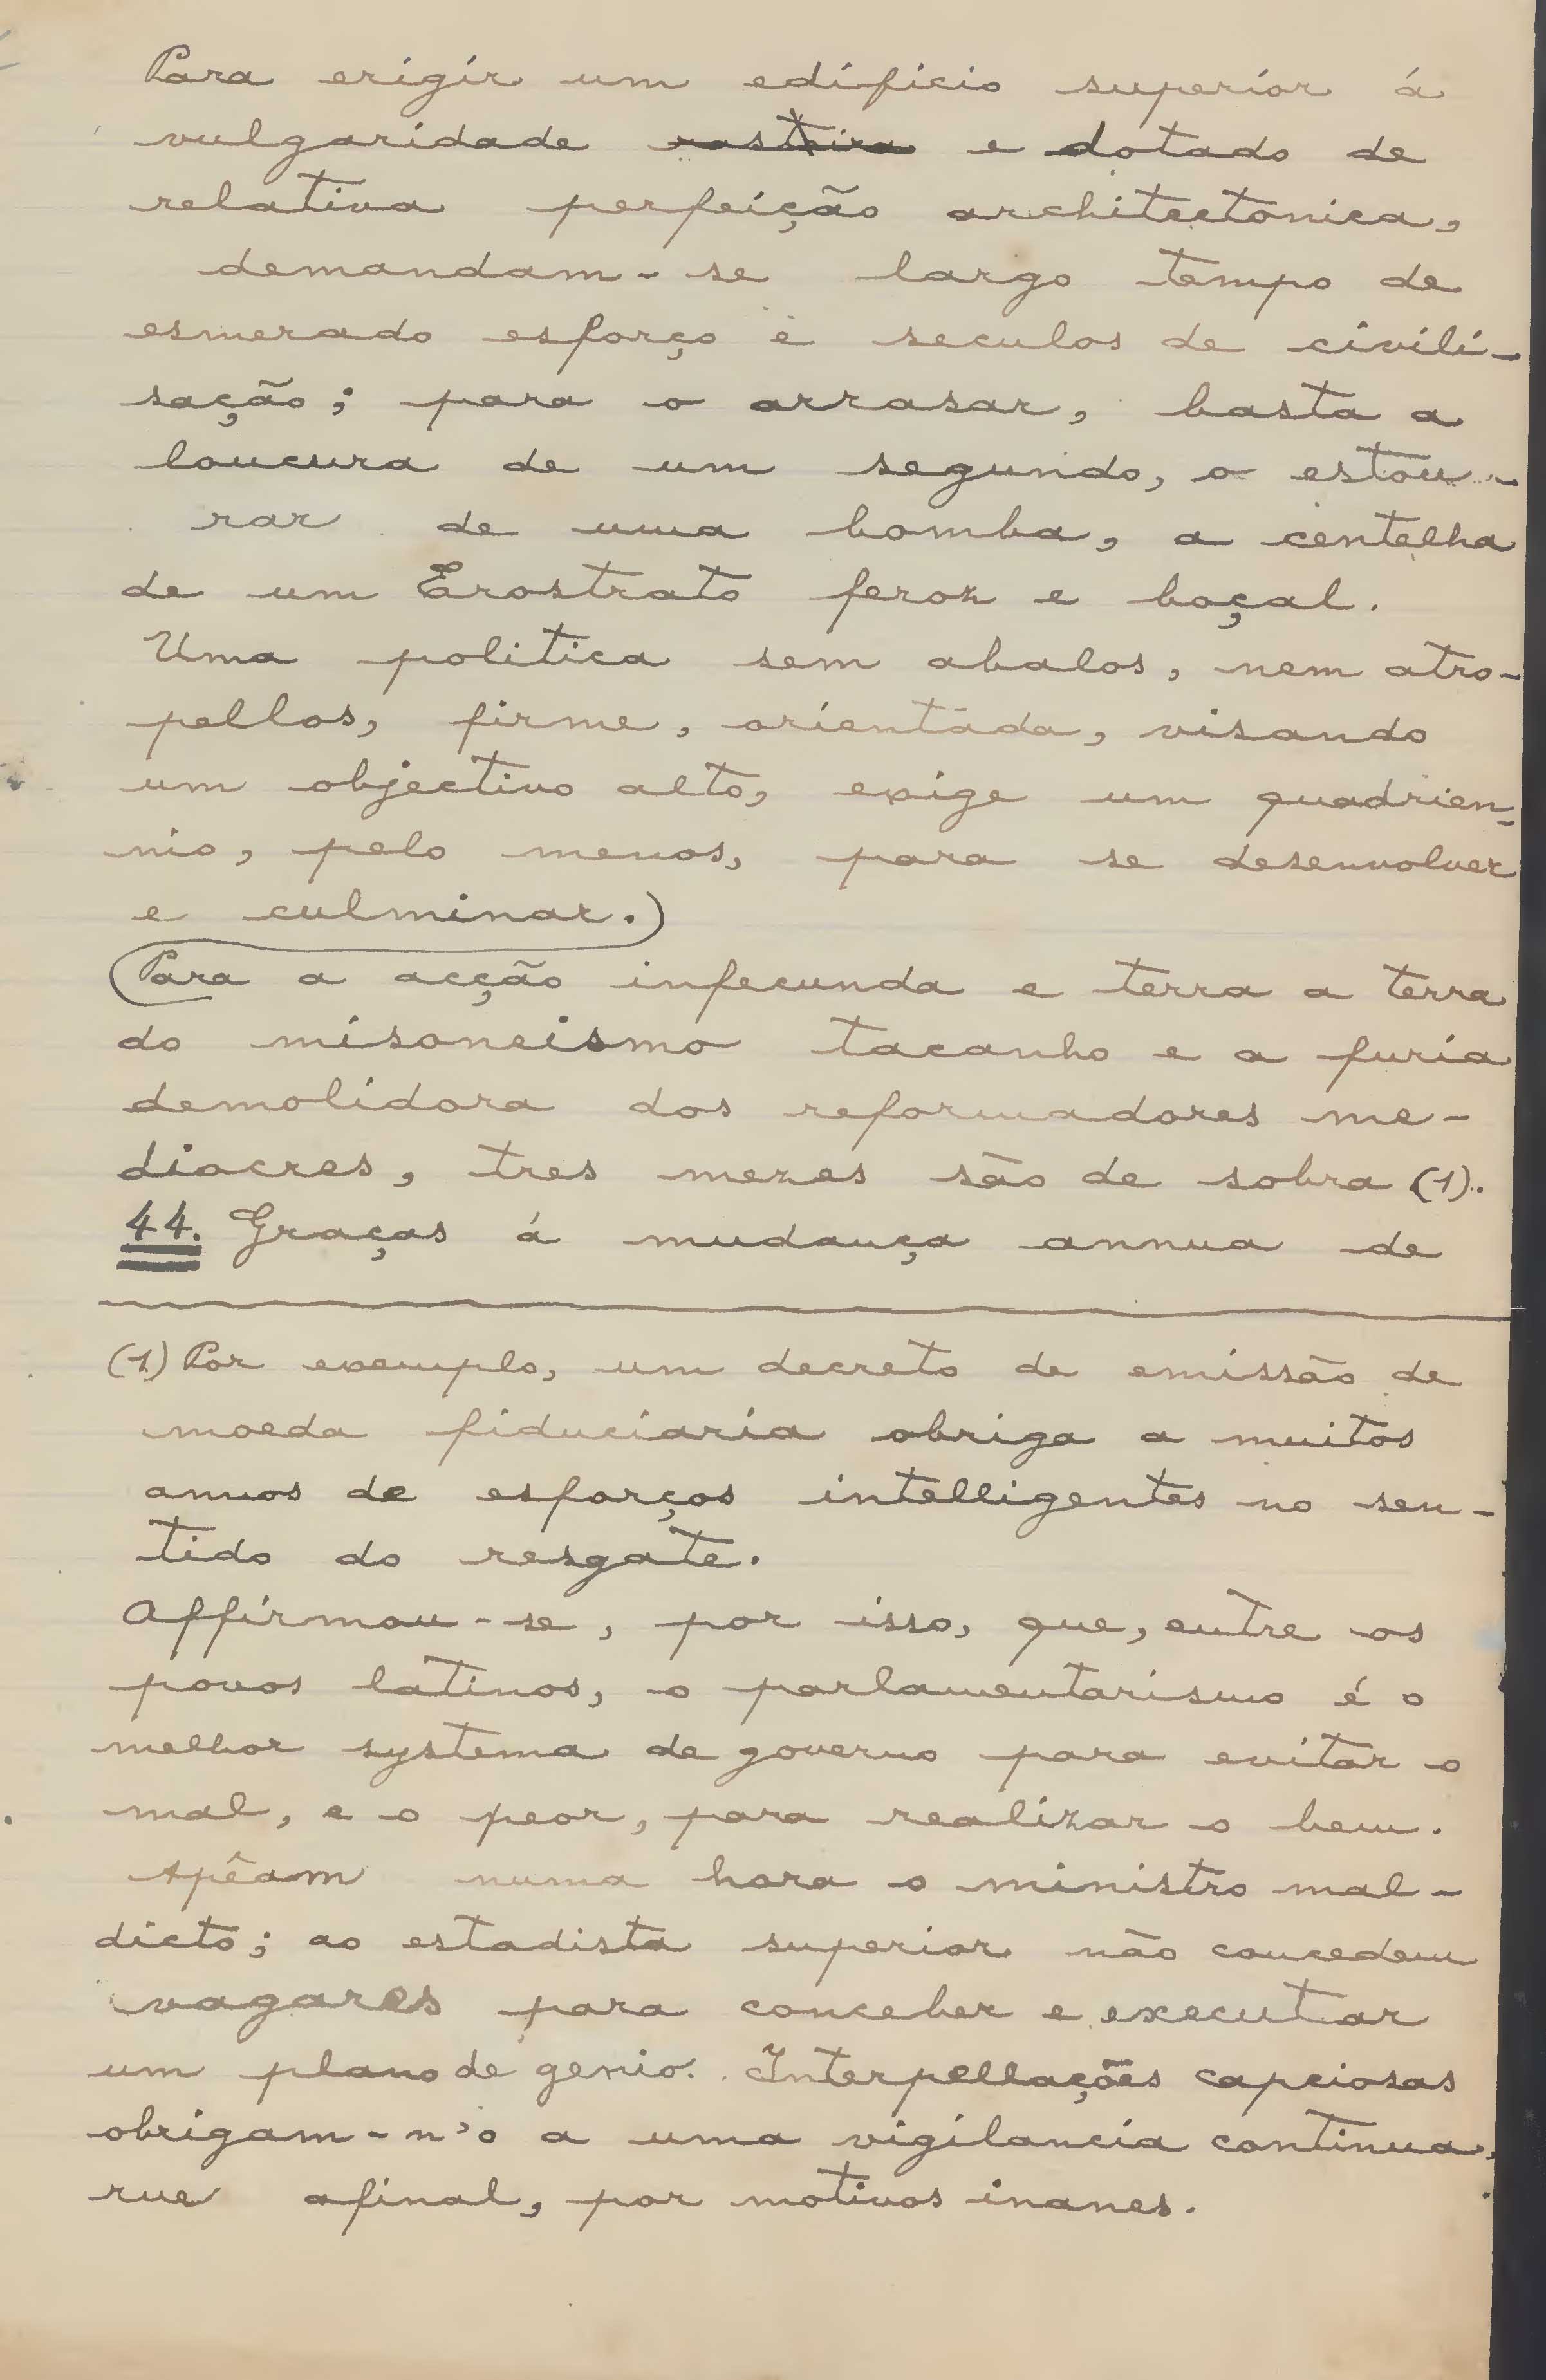 Para erigir um edificio superior á
vulgaridade rasteira e dotado de
relativa perfeição architectonica,
demandam-se largo tempo de
esmerado esforço e seculos de civili-
sação; para o arrasar, basta a
loucura de um segundo, o estou-
rar de uma bomba, a centelha
de um Erostrato feroz e boçal.
Uma politica sem abalos, nem atro-
pellos, firme, orientada, visando
um objectivo alto, exige um quadrien-
nio, pelo menos, para se desenvolver
e culminar.)
(Para a acção infecunda e terra a terra
do misoneismo tacanho e a furia
demolidora dos reformadores me-
diocres, tres mezes são de sobra (1).
44. Graças á mudança annua de
(1) Por exemplo, um decreto de emissão de
moeda fiduciaria obriga a muitos
annos de esforços intelligentes no sen-
tido do resgate.
Affirmou-se, por isso, que, entre os
povos latinos, o parlamentarismo é o
melhor systema de governo para evitar o
mal, e o peor, para realizar o bem.
Apêam numa hora o ministro mal-
dicto; ao estadista superior não concedem
vagares para conceber e executar
um plano de genio. Interpellações capciosas
obrigam-n'o a uma vigilancia continua,
rue afinal, por motivos inanes.